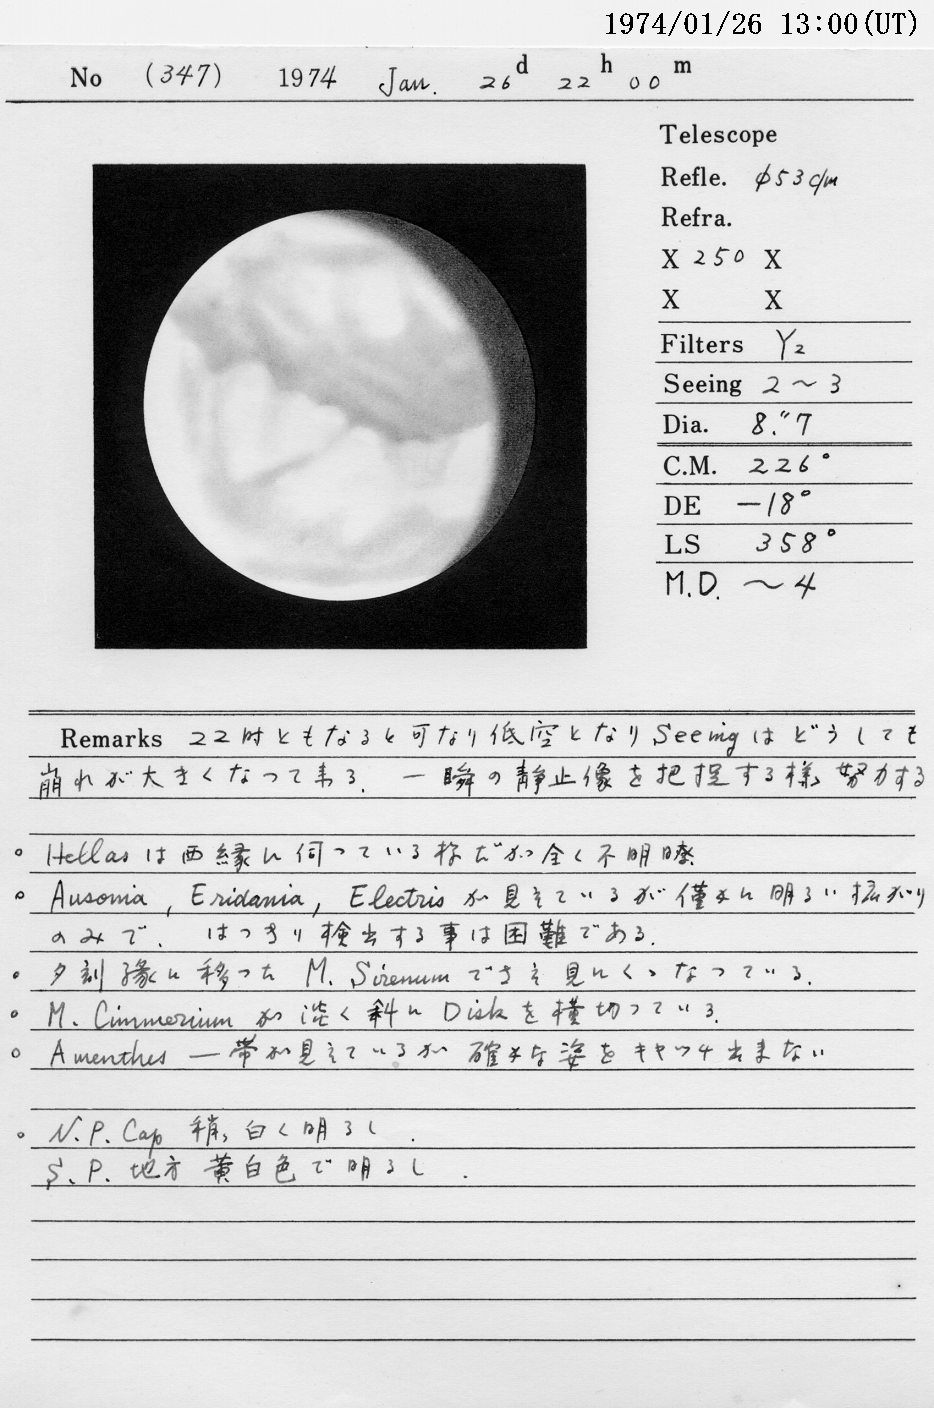 1974/01/26 13:00(UT)
No (347) 1974 Jan. 26d 22h 00m
Telescope
Refle. φ53c/m
Refra.
X 250 X
X X
Filters Y2
Seeing 2～3
Dia. 8."7
C.M. 226°
DE －18°
LS 358°
M.D. ～4
Remarks 22時ともなると可なり低空となりSeeingはどうしても
崩れが大きくなって来る. 一瞬の静止像を把捉する様努力する
。Hellasは西縁に何っている様だが全く不明瞭
。Ausonia, Eridania, Electrisが見えているが僅かに明るい拡がり
のみで. はっきり検出する事は困難である.
。夕刻縁に移った M. Sirenumでさえ見にくくなっている.
。M. Cimmeriumが淡く斜にDiskを横切っている.
。Amenthes 一帯が見えているが 確かな姿をキャッチ出来ない
。N.P.Cap 稍々白く明るし.
S.P.地方 黄白色で明るし.